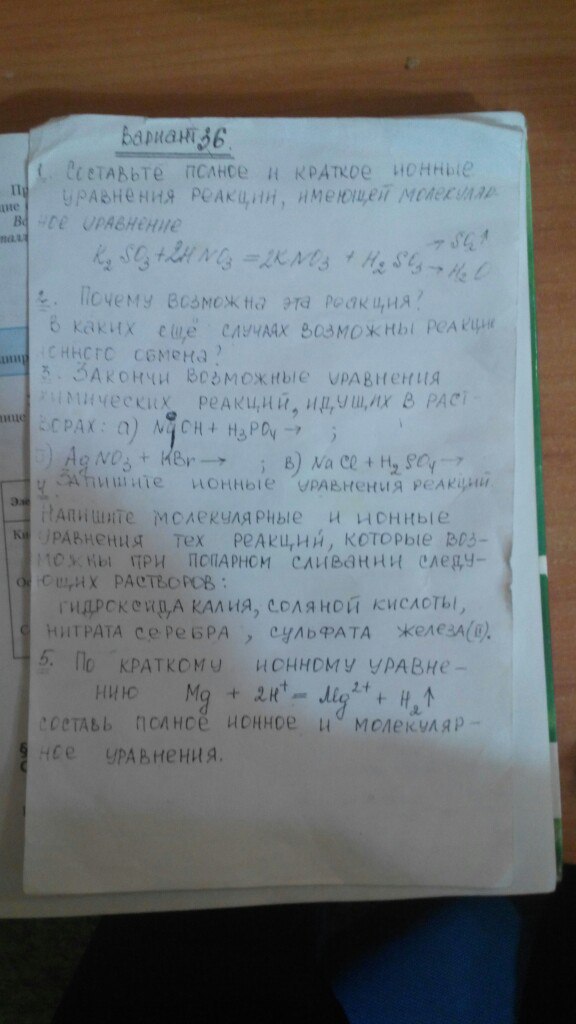 Вариант 36.
1. Составьте полное и краткое ионные
уравнения реакции, имеющей молекуляр-
ное уравнение
K₂SO₃+2HNO₃=2KNO₃ + H₂SO₃ →SO₂↑
→H₂O
2. Почему возможна эта реакция?
В каких ещё случаях возможны реакции
ионного обмена?
3. Закончи возможные уравнения
химических реакций, идущих в раст-
ворах: а) OH + H₃PO₄→ ;
б) AgNO₃ + KBr→ ; в) NaCl + H₂SO₄→
Запишите ионные уравнения реакций.
4
Напишите молекулярные и ионные
уравнения тех реакций, которые воз-
можны при попарном сливании следу-
ющих растворов:
гидроксида калия, соляной кислоты,
нитрата серебра, сульфата железа(II).
5. По краткому ионному уравне-
нию Mg + 2H⁺ = Mg²⁺ + H₂↑
составь полное ионное и молекуляр-
ное уравнения.